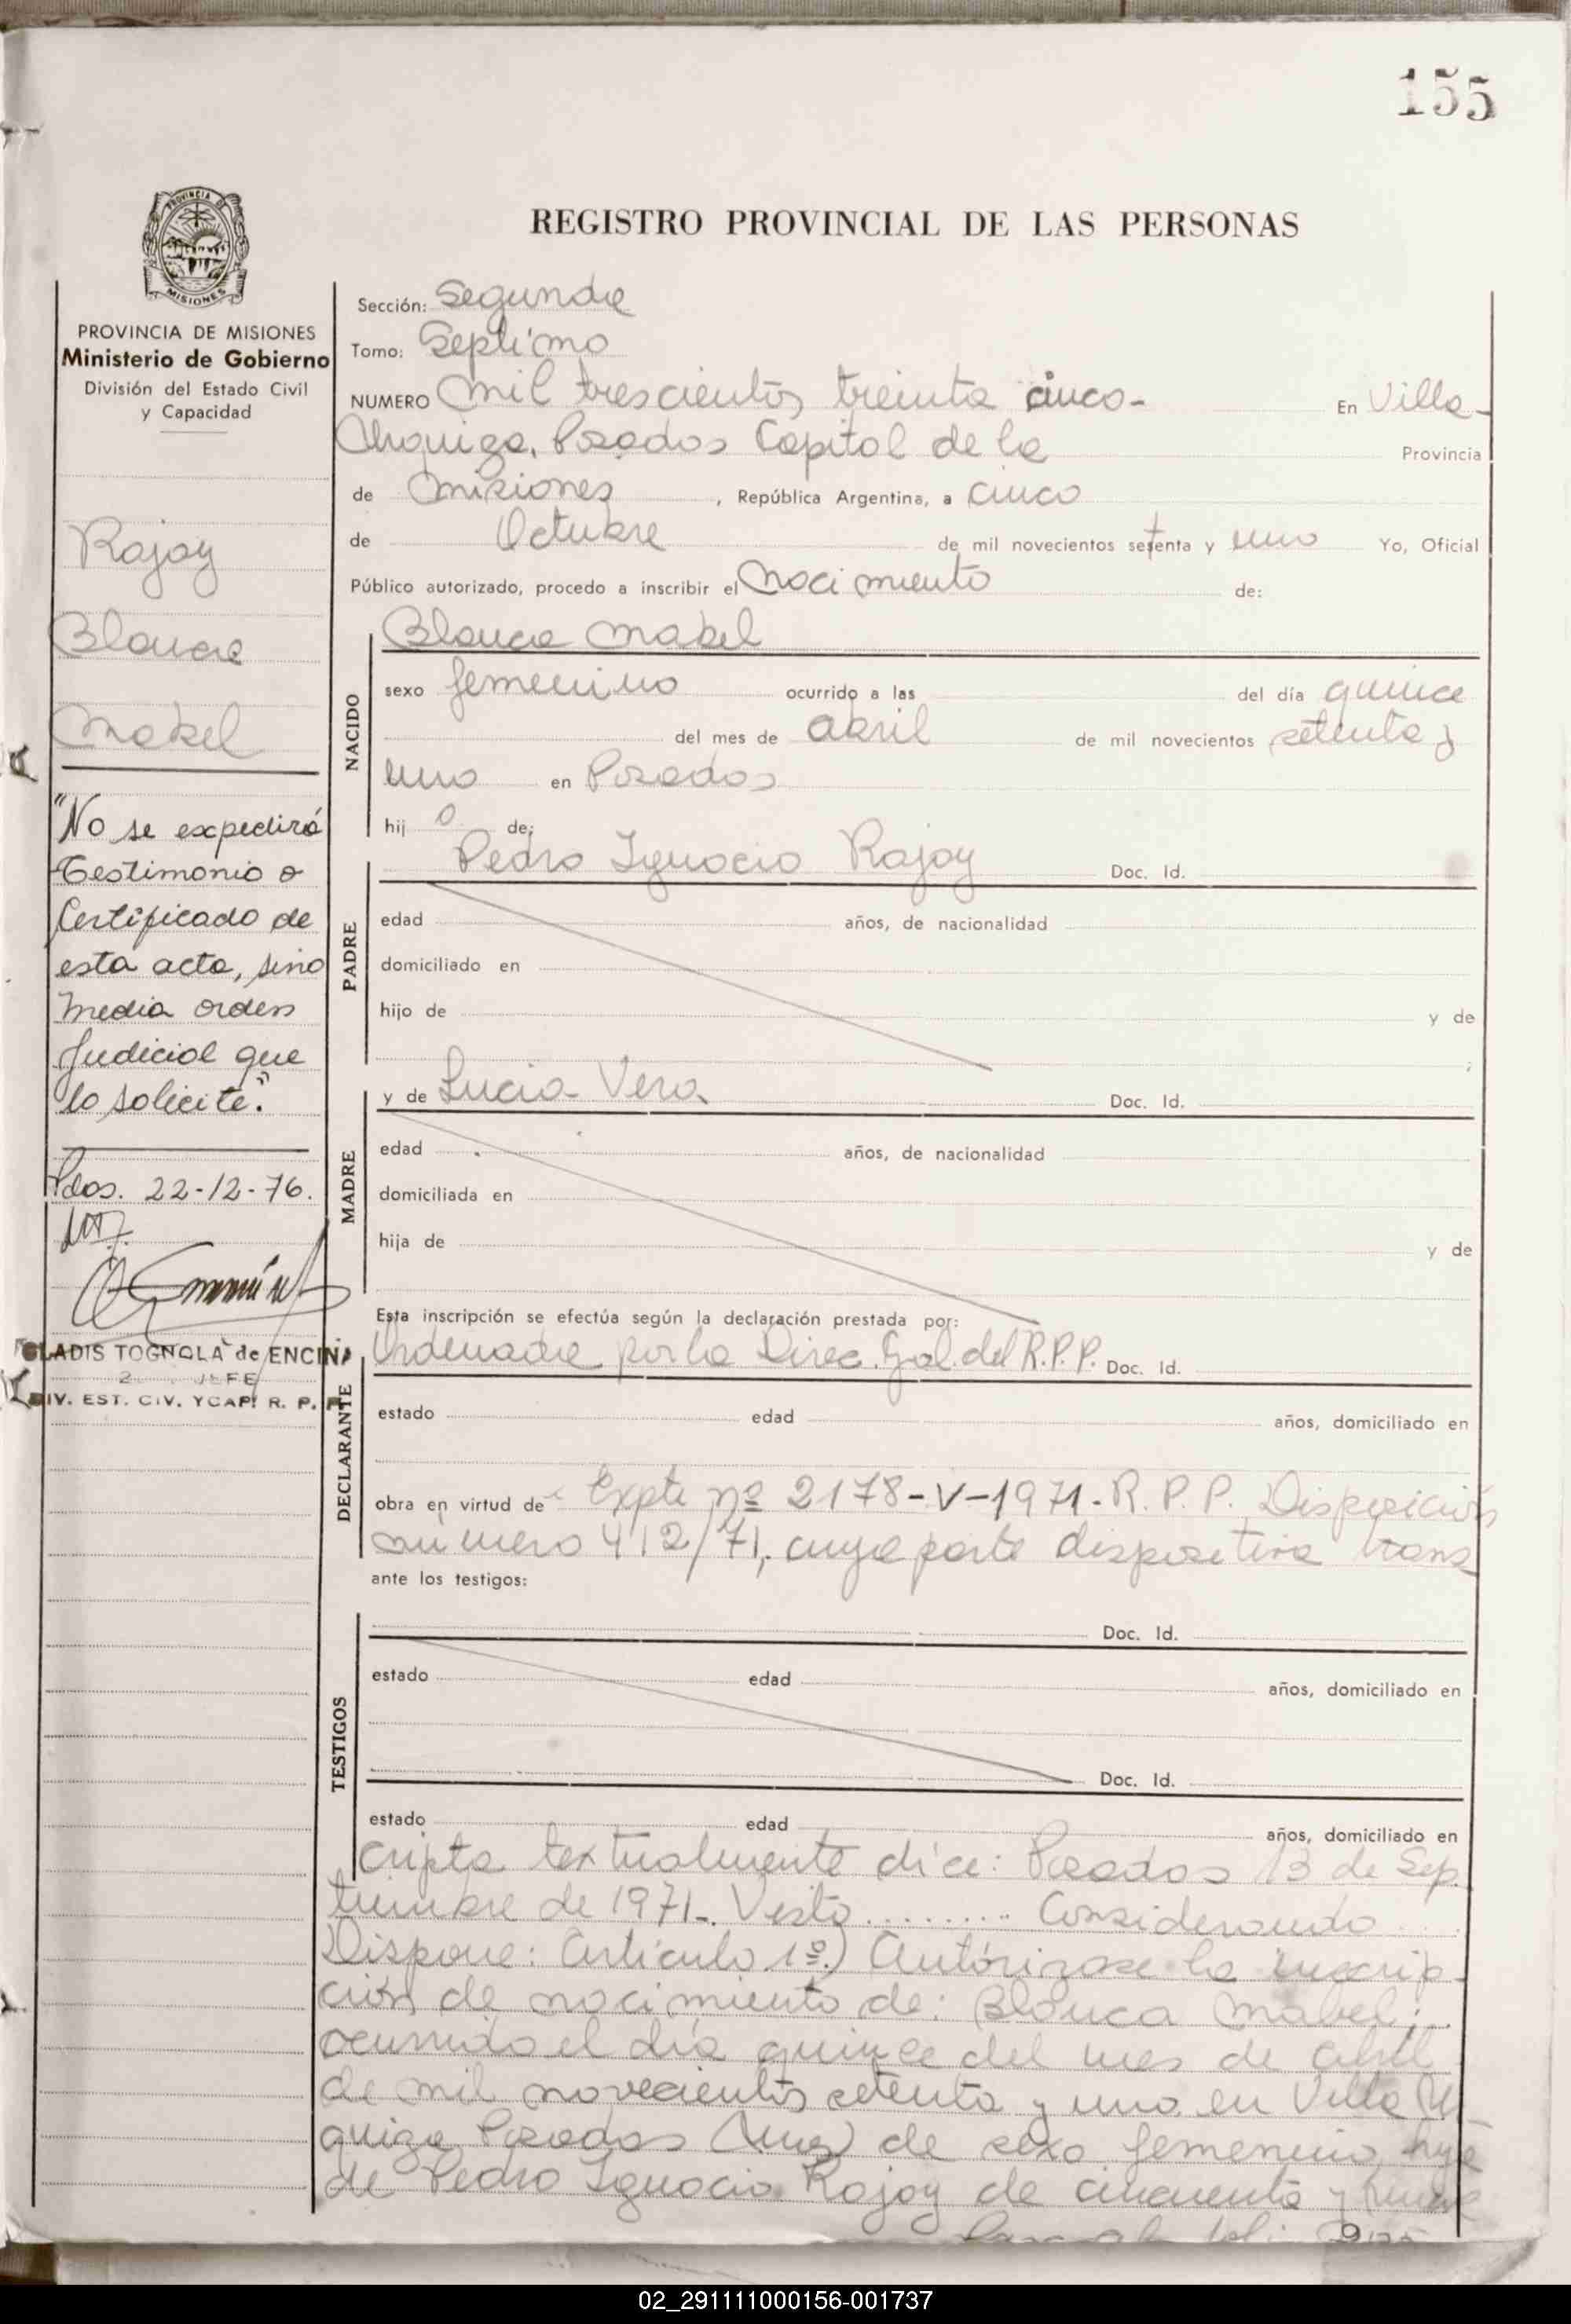 155
PROVINCIA DE
MISIONES
PROVINCIA DE MISIONES
Ministerio de Gobierno
División del Estado Civil
y Capacidad
Rojoy
Blanca
Mabel
"No se expedirá
Testimonio o
Certificado de
esta acta, sino
media orden
Judicial que
lo solicite."
Pdos. 22-12-76.
GLADIS TOGNOLA de ENCINA
2 JEFE
DIV. EST. CIV. YCAP. R. P. P.
REGISTRO PROVINCIAL DE LAS PERSONAS
Sección: Segunda
Tomo: Septimo
NUMERO Mil trescientos treinta cinco- En Villa-
Urquiza, Posadas Capital de la Provincia
de Misiones , República Argentina, a cinco
de Octubre de mil novecientos setenta y uno Yo, Oficial
Público autorizado, procedo a inscribir el Nacimiento de:
NACIDO
Blanca Mabel
sexo femenino ocurrido a las del día quince
del mes de abril de mil novecientos setenta y
uno en Posadas
hij a de:
PADRE
Pedro Ignacio Rojoy Doc. Id.
edad años, de nacionalidad
domiciliado en
hijo de y de
;
MADRE
y de Lucia Vera Doc. Id.
edad años, de nacionalidad
domiciliada en
hija de y de
Esta inscripción se efectúa según la declaración prestada por:
DECLARANTE
Ordenada por la Direc. Gral. del R.P.P. Doc. Id.
estado edad años, domiciliado en
obra en virtud de Expte nº 2178-V-1971-R.P.P. Disposición
numero 412/71, cuya parte dispositiva trans
ante los testigos:
TESTIGOS
Doc. Id.
estado edad años, domiciliado en
Doc. Id.
estado edad años, domiciliado en
cripta textualmente dice: Posadas 13 de Sep.
tiembre de 1971-. Visto ........ Considerando ...
Dispone: Artículo 1º.) Autórizase la inscrip-
ción de nacimiento de: Blanca Mabel;
ocurrido el día quince del mes de abril
de mil novecientos setenta y uno en Villa Ur
quiza Posadas (Mnes) de sexo femenino, hija
de Pedro Ignacio Rojoy de cincuenta y nueve
02_291111000156-001737